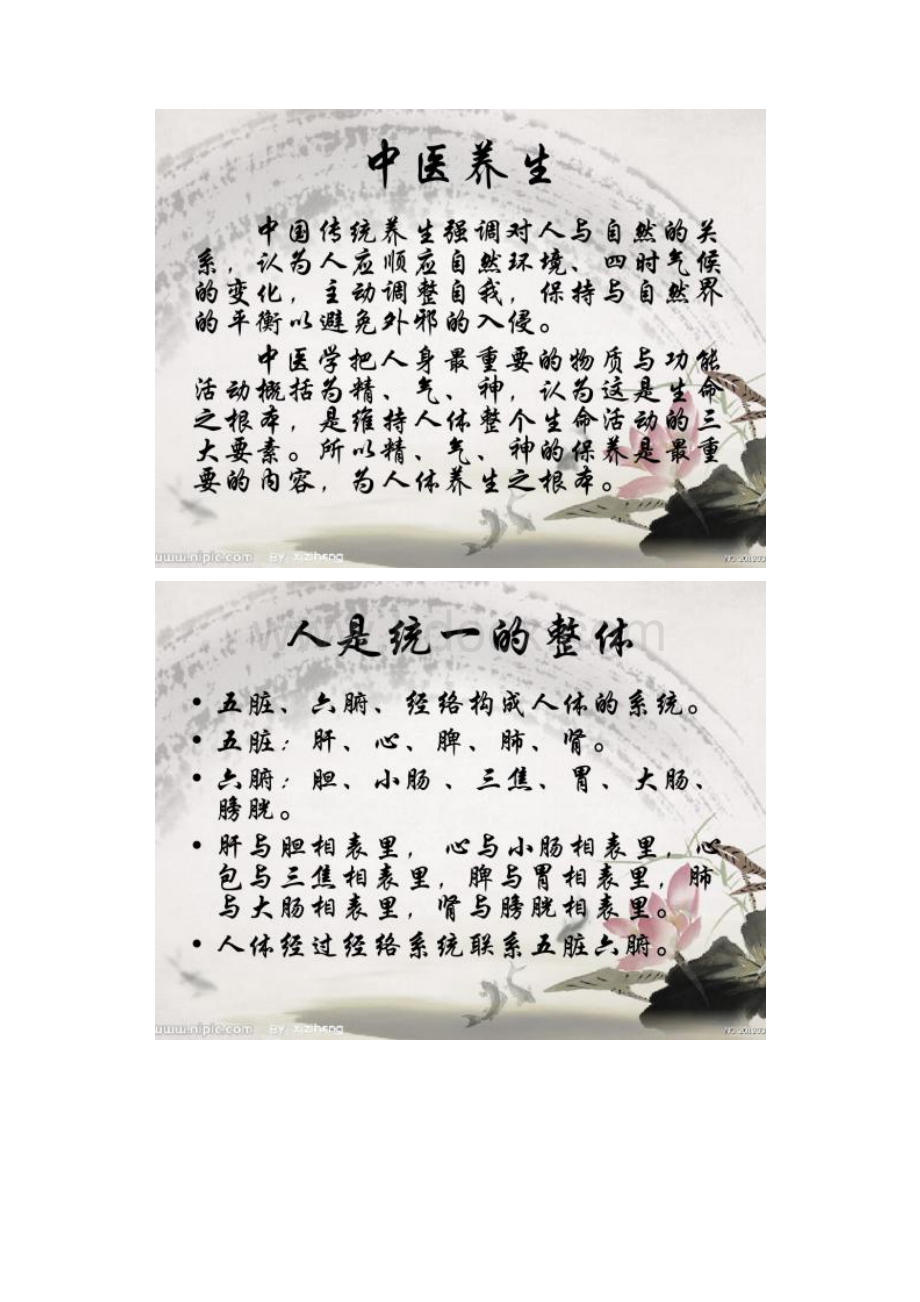 中医养生
中国传统养生强调对人与自然的关
系，认为人应顺应自然环境、四时气候
的变化，主动调整自我，保持与自然界
的平衡以避免外邪的入侵。
中医学把人身最重要的物质与功能
活动概括为精、气、神，认为这是生命
之根本，是维持人体整个生命活动的三
大要素。所以精、气、神的保养是最重
要的内容，为人体养生之根本。
www.nipic.com By: xizihong
人是统一的整体
• 五脏、六腑、经络构成人体的系统。
• 五脏：肝、心、脾、肺、肾。
• 六腑：胆、小肠、三焦、胃、大肠、
膀胱。
• 肝与胆相表里， 心与小肠相表里，心
包与三焦相表里，脾与胃相表里，肺
与大肠相表里，肾与膀胱相表里。
• 人体经过经络系统联系五脏六腑。
www.nipic.com By: xizihong